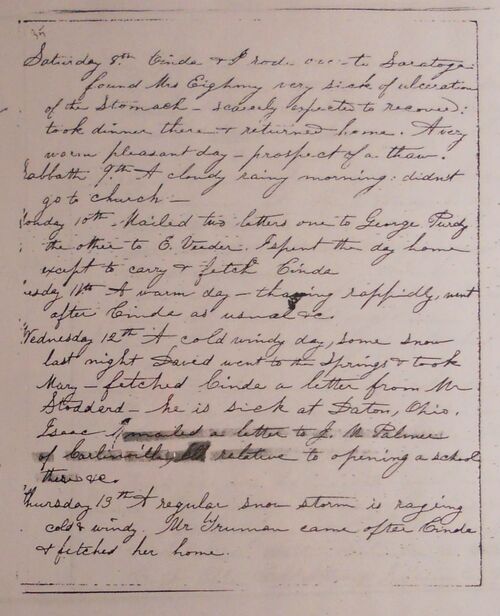 Saturday 8th Cinda & I rode over to Saratoga
found Mrs Eighmy very sick of ulceration
of the Stomach – scarcely expected to recover:
took dinner there & returned home. A very
warm pleasant day – prospect of a thaw.
Sabbath 9th A cloudy rainy morning: didn't
go to church –
Monday 10th Mailed two letters one to George Purdy
the other to E. Veeder. I spent the day home
except to carry & fetch Cinda
uesday 11th A warm day – thawing rappidly, went
after Cinda as usual &c.
Wednesday 12th A cold windy day, some snow
last night David went to the Springs & took
Mary – fetched Cinda a letter from Mr
Stodderd – he is sick at Daton, Ohio.
Isaac I mailed a letter to J. M. Palmer
of relative to opening a school
there &c.
Thursday 13th A regular snow storm is raging
cold & windy. Mr Truman came after Cinda
& fetched her home.